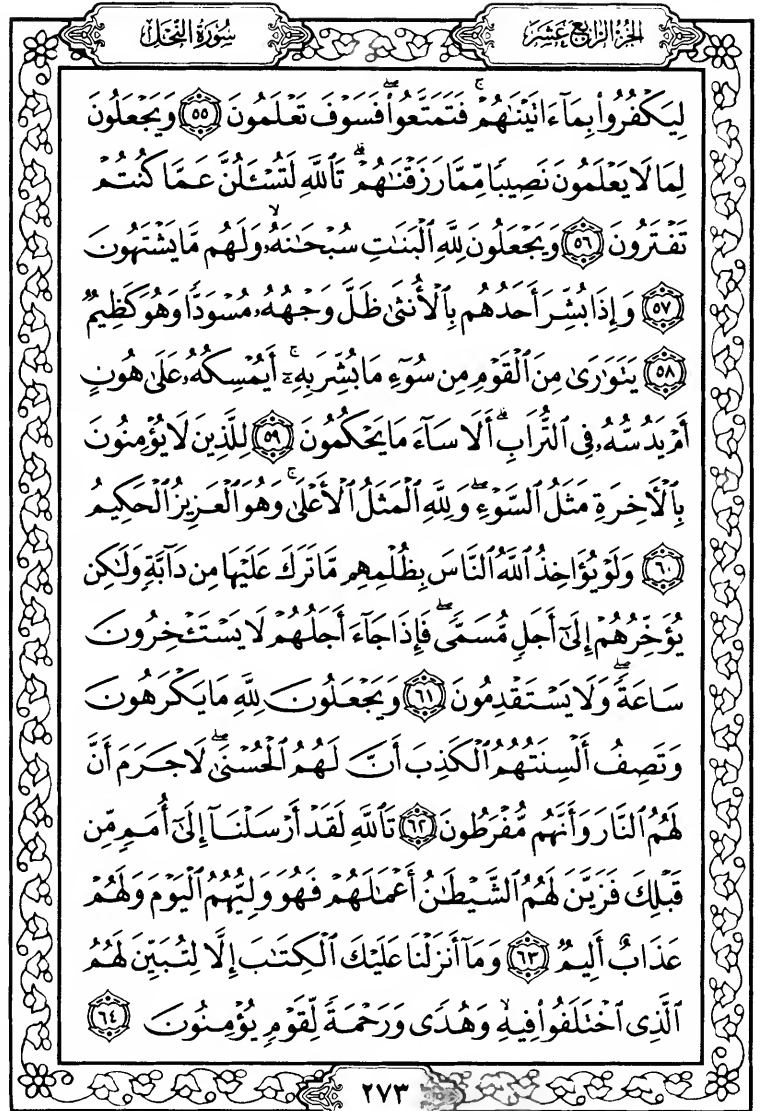 الجزء الرابع عشر
سورة النحل
لِيَكْفُرُواْ بِمَآ ءَاتَيْنَٰهُمْ ۚ فَتَمَتَّعُواْ ۖ فَسَوْفَ تَعْلَمُونَ ﴿٥٥﴾ وَيَجْعَلُونَ
لِمَا لَا يَعْلَمُونَ نَصِيبًا مِّمَّا رَزَقْنَٰهُمْ ۗ تَٱللَّهِ لَتُسْـَٔلُنَّ عَمَّا كُنتُمْ
تَفْتَرُونَ ﴿٥٦﴾ وَيَجْعَلُونَ لِلَّهِ ٱلْبَنَٰتِ سُبْحَٰنَهُۥ ۙ وَلَهُم مَّا يَشْتَهُونَ
﴿٥٧﴾ وَإِذَا بُشِّرَ أَحَدُهُم بِٱلْأُنثَىٰ ظَلَّ وَجْهُهُۥ مُسْوَدًّا وَهُوَ كَظِيمٌ
﴿٥٨﴾ يَتَوَٰرَىٰ مِنَ ٱلْقَوْمِ مِن سُوٓءِ مَا بُشِّرَ بِهِۦٓ ۚ أَيُمْسِكُهُۥ عَلَىٰ هُونٍ
أَمْ يَدُسُّهُۥ فِى ٱلتُّرَابِ ۗ أَلَا سَآءَ مَا يَحْكُمُونَ ﴿٥٩﴾ لِلَّذِينَ لَا يُؤْمِنُونَ
بِٱلْـَٔاخِرَةِ مَثَلُ ٱلسَّوْءِ ۖ وَلِلَّهِ ٱلْمَثَلُ ٱلْأَعْلَىٰ ۚ وَهُوَ ٱلْعَزِيزُ ٱلْحَكِيمُ
﴿٦٠﴾ وَلَوْ يُؤَاخِذُ ٱللَّهُ ٱلنَّاسَ بِظُلْمِهِم مَّا تَرَكَ عَلَيْهَا مِن دَآبَّةٍ وَلَٰكِن
يُؤَخِّرُهُمْ إِلَىٰٓ أَجَلٍ مُّسَمًّى ۖ فَإِذَا جَآءَ أَجَلُهُمْ لَا يَسْتَـْٔخِرُونَ
سَاعَةً ۖ وَلَا يَسْتَقْدِمُونَ ﴿٦١﴾ وَيَجْعَلُونَ لِلَّهِ مَا يَكْرَهُونَ
وَتَصِفُ أَلْسِنَتُهُمُ ٱلْكَذِبَ أَنَّ لَهُمُ ٱلْحُسْنَىٰ ۖ لَا جَرَمَ أَنَّ
لَهُمُ ٱلنَّارَ وَأَنَّهُم مُّفْرَطُونَ ﴿٦٢﴾ تَٱللَّهِ لَقَدْ أَرْسَلْنَآ إِلَىٰٓ أُمَمٍ مِّن
قَبْلِكَ فَزَيَّنَ لَهُمُ ٱلشَّيْطَٰنُ أَعْمَٰلَهُمْ فَهُوَ وَلِيُّهُمُ ٱلْيَوْمَ وَلَهُمْ
عَذَابٌ أَلِيمٌ ﴿٦٣﴾ وَمَآ أَنزَلْنَا عَلَيْكَ ٱلْكِتَٰبَ إِلَّا لِتُبَيِّنَ لَهُمُ
ٱلَّذِى ٱخْتَلَفُواْ فِيهِ ۙ وَهُدًى وَرَحْمَةً لِّقَوْمٍ يُؤْمِنُونَ ﴿٦٤﴾
٢٧٣